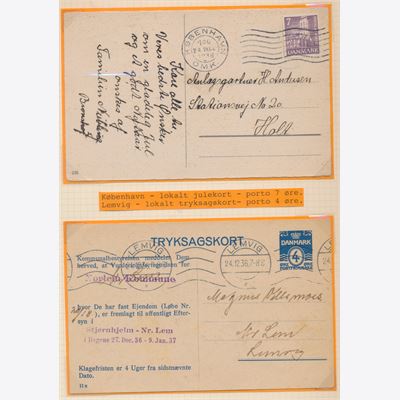 Kære alle her
Vores bedste Ønsker
om en glædelig Jul
og et godt Nytaar
ønskes af
Familien
KØBENHAVN
OMK.
7
DANMARK
Anlægsgartner H. Andersen
Stationsvej No 20
Holt
København - lokalt julekort - porto 7 øre.
Lemvig - lokalt tryksagskort - porto 4 øre.
LEMVIG
TRYKSAGSKORT
LEMVIG
24.12.36.7-8
DANMARK
4
Kommunalbestyrelsen meddeler Dem
herved, at Vurderingsfortegnelsen for
Norlem Kommune
hvor De har fast Ejendom (Løbe Nr.
), er fremlagt til offentligt Efter-
syn i
Stjernhjelm - Nr. Lem
i Dagene 27. Dec. 36 - 9. Jan. 37
Klagefristen er 4 Uger fra sidstnævnte
Dato.
Magnus
Nr Lem
Lemvig